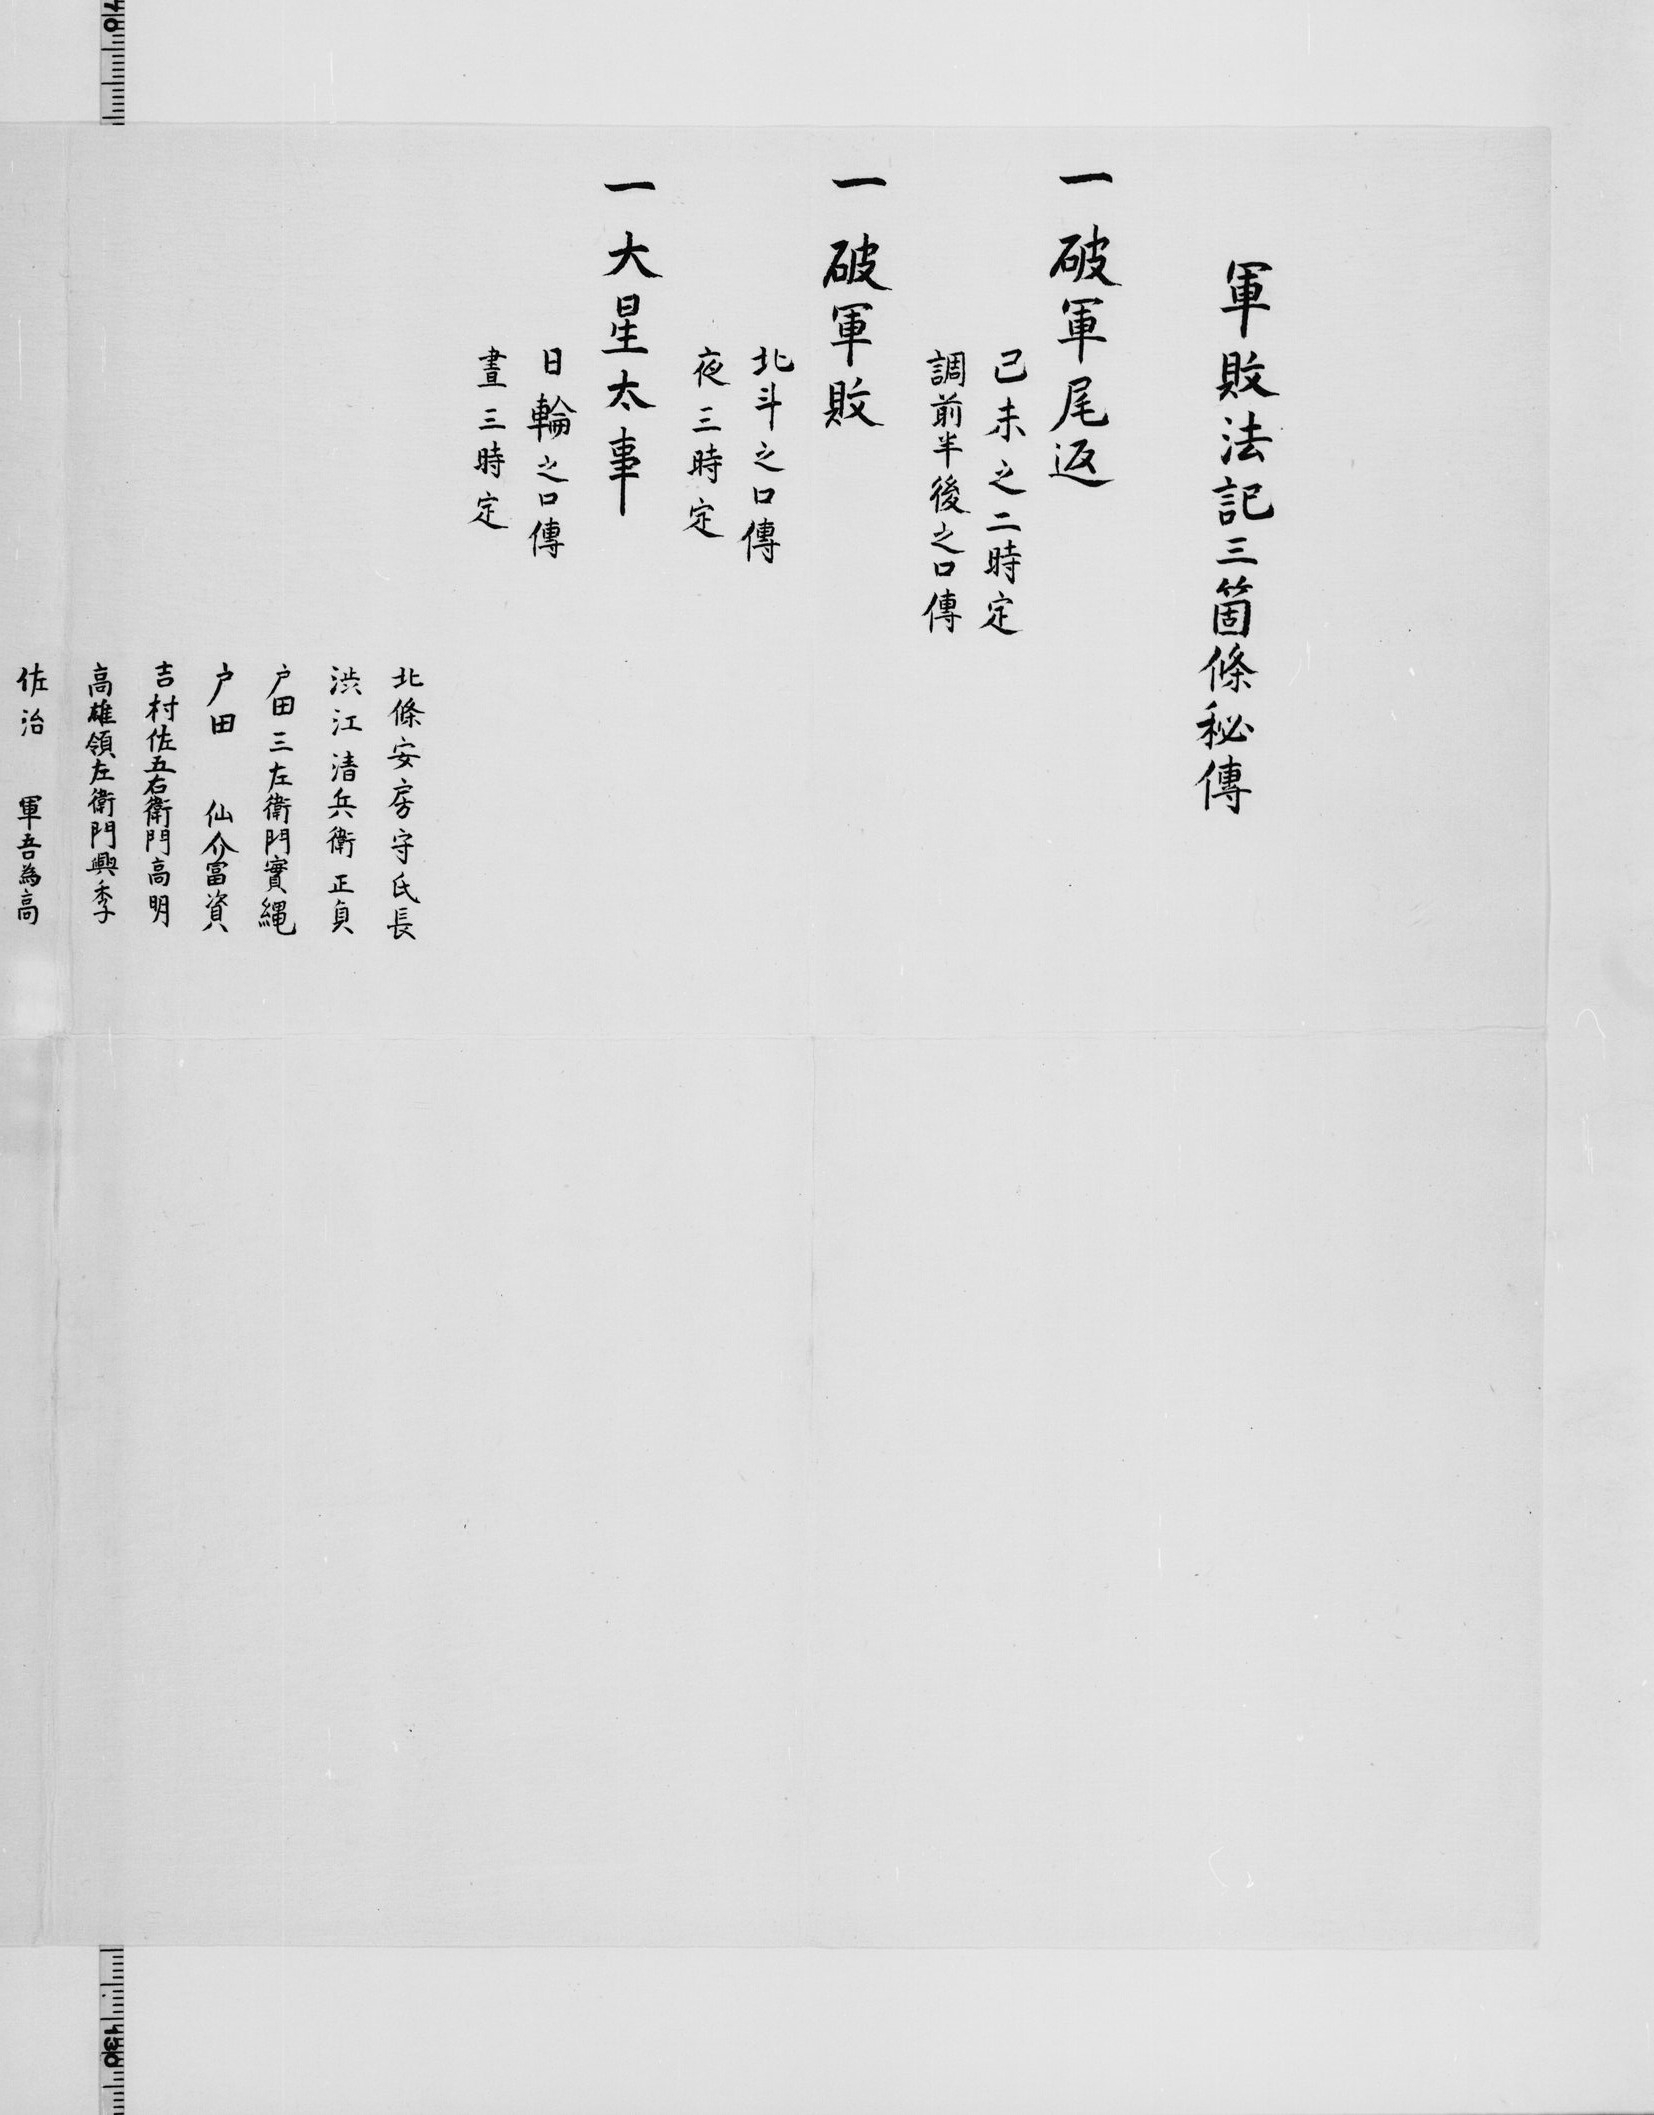 軍敗法記三箇條秘傳
一破軍尾返
己未之二時定
調前半後之口傳
一破軍敗
北斗之口傳
夜三時定
一大星太事
日輪之口傳
晝三時定
北條安房守氏長
渋江清兵衛正貞
戸田三左衛門實縄
戸田仙介富資
吉村佐五右衛門高明
高雄領左衛門興季
佐治軍吾為高
70
130